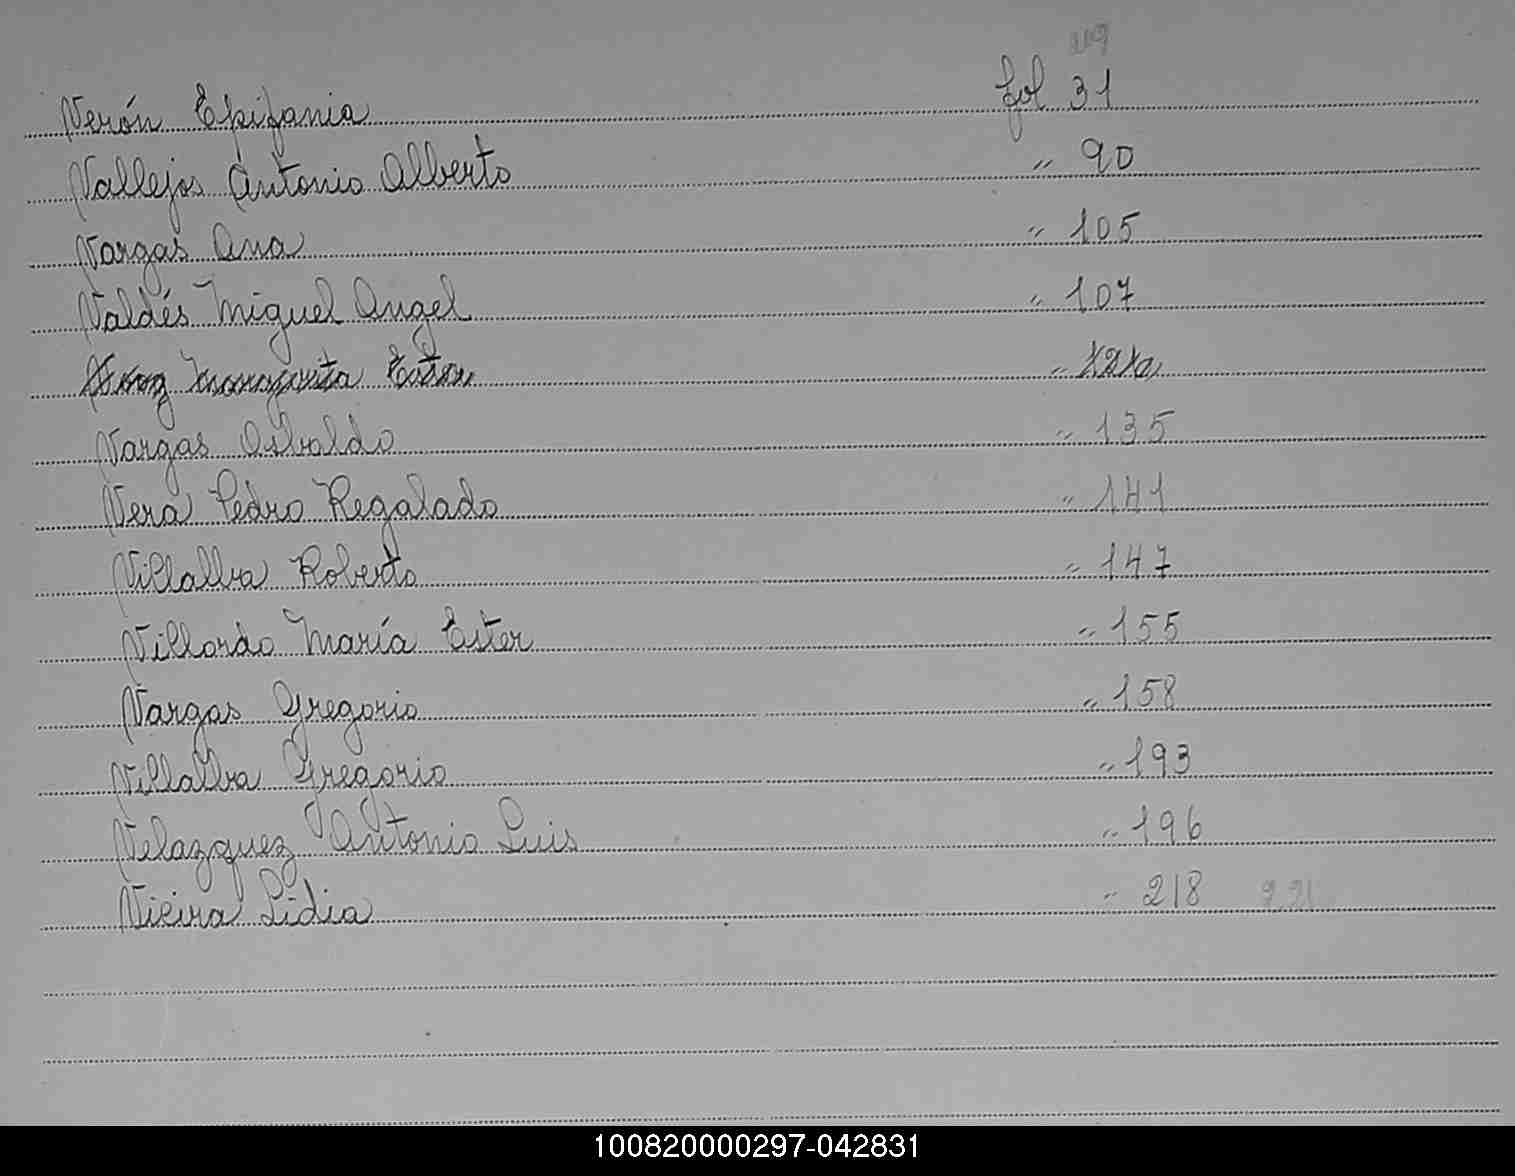 Verón Epifania fol 31
Vallejos Antonio Alberto " 90
Vargas Ana " 105
Valdés Miguel Angel " 107
Margarita Ester "
Vargas Osvaldo " 135
Vera Pedro Regalado " 141
Villalba Roberto " 147
Villordo María Ester " 155
Vargas Gregorio " 158
Villalba Gregorio " 193
Velazquez Antonio Luis " 196
Vieira Lidia " 218 221
100820000297-042831